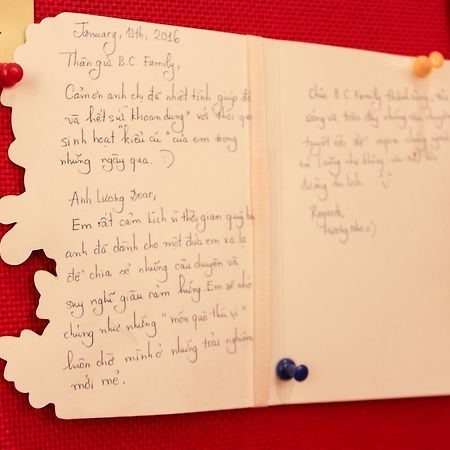 January, 13th, 2016
Thân gửi B.C. Family,
Cảm ơn anh chị đã nhiệt tình giúp đỡ
và hết sức "khoan dung" với thói quen
sinh hoạt "kiểu cú" của em trong
những ngày qua. :)
Anh Lương Dear,
Em rất cảm kích vì thời gian quý báu
anh đã dành cho một đứa em xa lạ
để chia sẻ những câu chuyện và
suy nghĩ giàu cảm hứng. Em sẽ nhớ
chúng như những "món quà thú vị"
luôn chờ mình ở những trải nghiệm
mới mẻ.
Chúc B.C. Family thành công,
và tràn đầy những câu chuyện
tuyệt vời để
đường du lịch.
Regards,